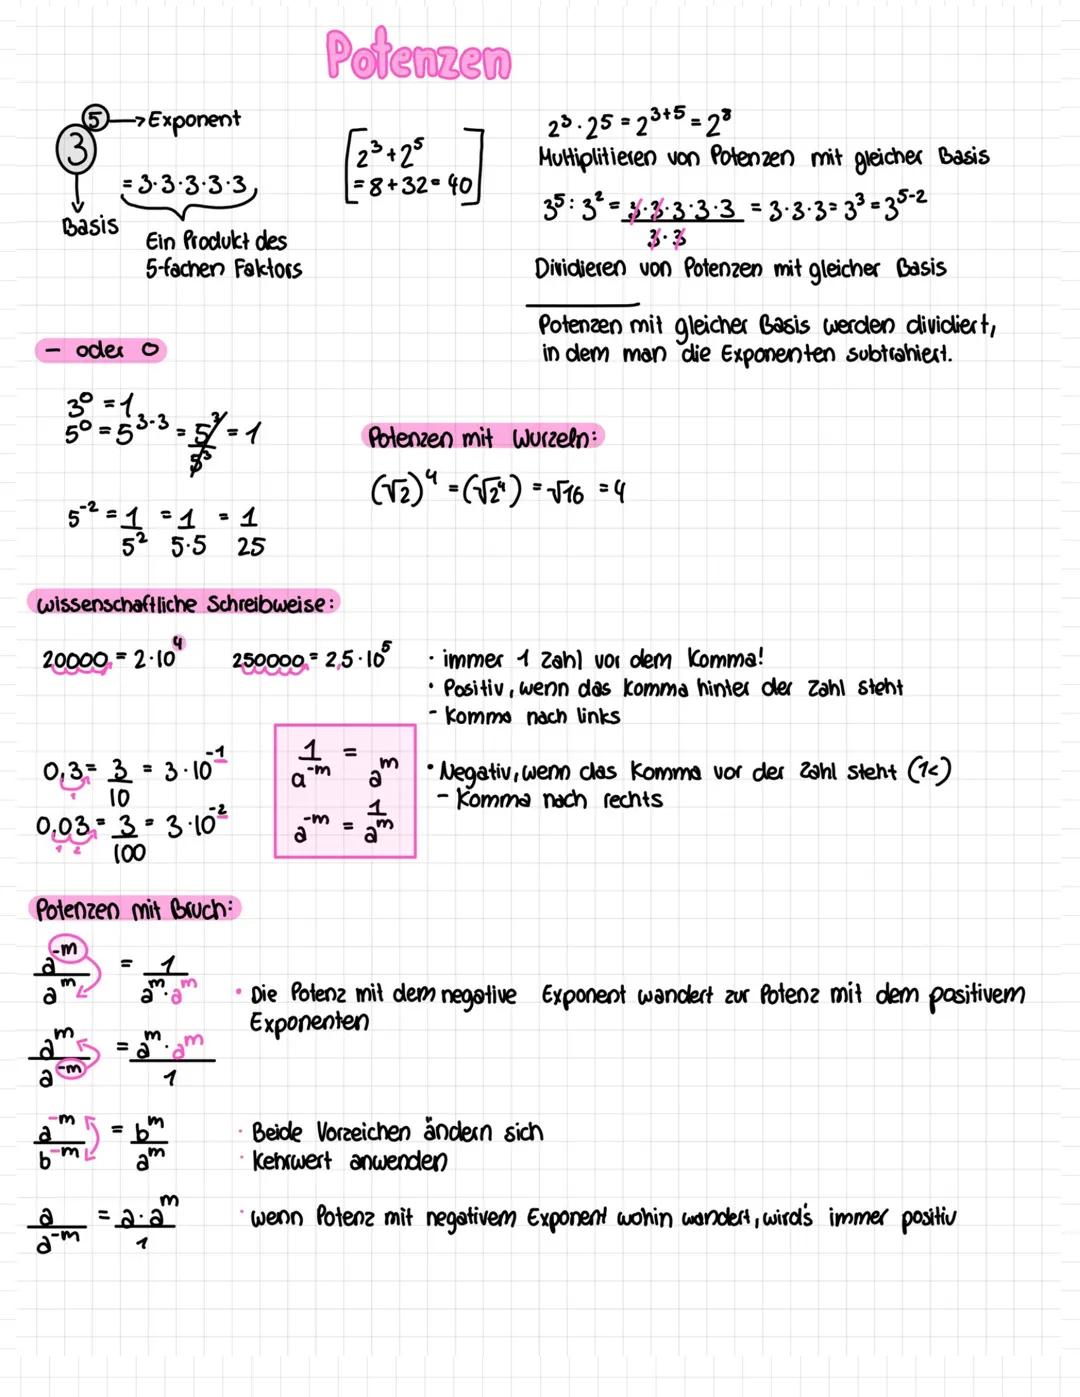 Potenzen
3⁵ → Exponent
= 3·3·3·3·3,
Basis
Ein Produkt des
5-fachen Faktors
[2³+2⁵
= 8+32=40]
2³·2⁵ = 2³⁺⁵ = 2⁸
Multiplitieren von Potenzen mit gleicher Basis
3⁵ : 3² = 3·3·3·3·3 / 3·3 = 3·3·3 = 3³ = 3⁵⁻²
Dividieren von Potenzen mit gleicher Basis
Potenzen mit gleicher Basis werden dividiert,
in dem man die Exponenten subtrahiert.
- oder 0
3⁰ = 1
5⁰ = 5³⁻³ = 5³/5³ = 1
5⁻² = 1/5² = 1/5·5 = 1/25
Potenzen mit Wurzeln:
(√2)⁴ = (√2⁴) = √16 = 4
wissenschaftliche Schreibweise:
20000, = 2·10⁴
250000, = 2,5·10⁵
· immer 1 Zahl vor dem Komma!
· Positiv, wenn das Komma hinter der Zahl steht
- Komma nach links
0,3 = 3/10 = 3·10⁻¹
1
0,03 = 3/100 = 3·10⁻²
1 2
1/a⁻ᵐ = aᵐ
a⁻ᵐ = 1/aᵐ
· Negativ, wenn das Komma vor der Zahl steht (1<)
- Komma nach rechts
Potenzen mit Bruch:
a⁻ᵐ/aᵐ = 1/aᵐ·aᵐ
· Die Potenz mit dem negative Exponent wandert zur Potenz mit dem positivem
Exponenten
aᵐ/a⁻ᵐ = aᵐ·aᵐ/1
a⁻ᵐ/b⁻ᵐ = bᵐ/aᵐ
· Beide Vorzeichen ändern sich
· Kehrwert anwenden
a/a⁻ᵐ = a·aᵐ/1
· wenn Potenz mit negativem Exponent wohin wandert, wird's immer positiv